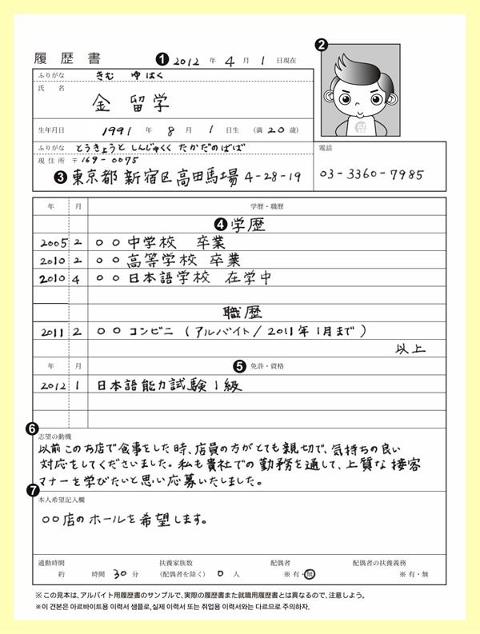 履歴書
❶ 2012 年 4 月 1 日現在
❷
ふりがな きむ ゆはく
氏 名
金 留学
生年月日 1991 年 8 月 1 日生 (満 20 歳)
ふりがな とうきょうと しんじゅくく たかだのばば
電話
現住所 〒169-0075
❸ 東京都 新宿区 高田馬場 4-28-19
03-3360-7985
年 月 学歴・職歴
❹ 学歴
2005 2 〇〇中学校 卒業
2010 2 〇〇高等学校 卒業
2010 4 〇〇日本語学校 在学中
職歴
2011 2 〇〇コンビニ (アルバイト/2011年1月まで)
以上
年 月 ❺ 免許・資格
2012 1 日本語能力試験1級
❻
志望の動機
以前このお店で食事をした時、店員の方がとても親切で、気持ちの良い
対応をしてくださいました。私も貴社での勤務を通して、上質な接客
マナーを学びたいと思い応募いたしました。
❼
本人希望記入欄
〇〇店のホールを希望します。
通勤時間 扶養家族数 配偶者 配偶者の扶養義務
約 時間 30 分 (配偶者を除く) 0 人 ※有・無 ※有・無
※この見本は、アルバイト用履歴書のサンプルで、実際の履歴書または就職用履歴書とは異なるので、注意しよう。
※이 견본은 아르바이트용 이력서 샘플로, 실제 이력서 또는 취업용 이력서와는 다르므로 주의하자.